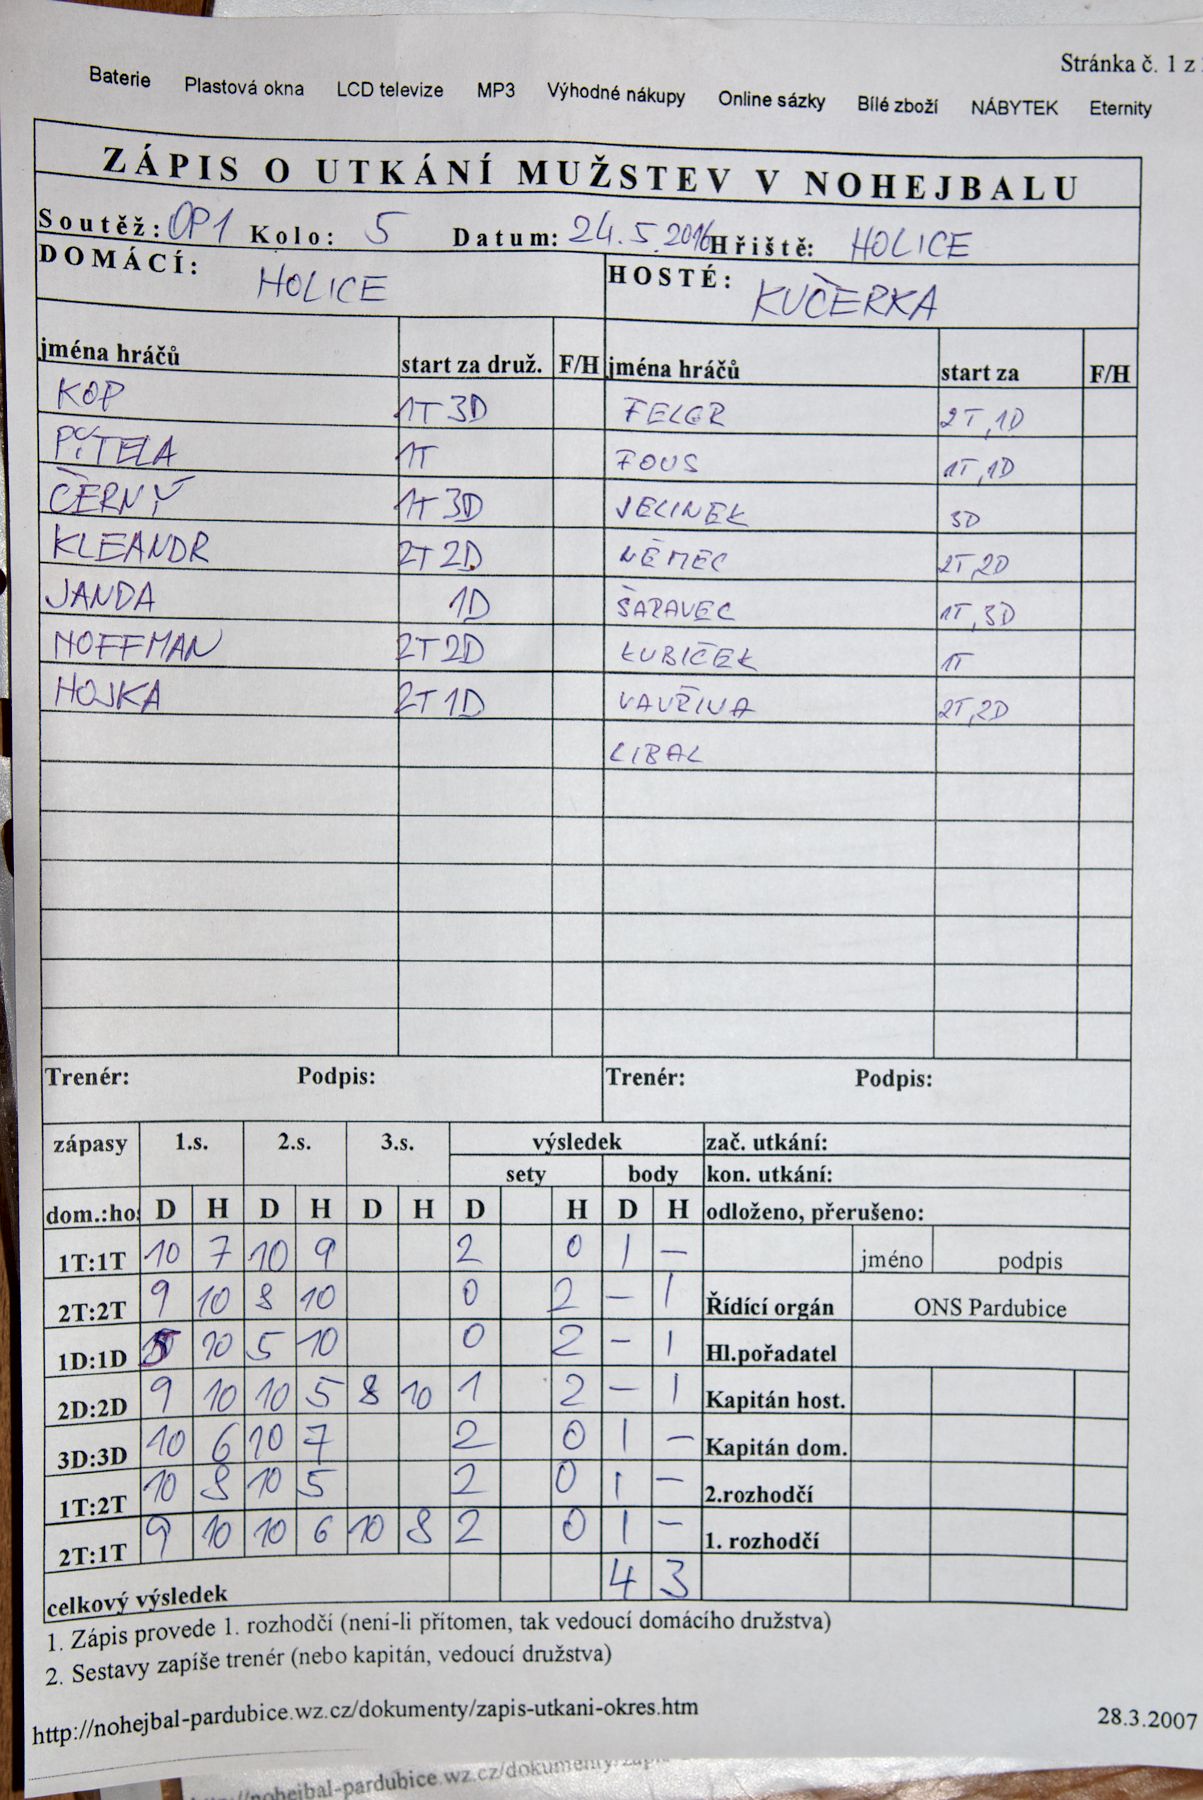 Stránka č. 1 z
Baterie Plastová okna LCD televize MP3 Výhodné nákupy Online sázky Bílé zboží NÁBYTEK Eternity
ZÁPIS O UTKÁNÍ MUŽSTEV V NOHEJBALU
Soutěž: OP1 Kolo: 5 Datum: 24.5.2016 Hřiště: HOLICE
DOMÁCÍ: HOLICE HOSTÉ: KUČERKA
jména hráčů start za druž. F/H jména hráčů start za F/H
KOP 1T 3D FELGR 2T,1D
PÍTELA 1T FOUS 1T,1D
ČERNÝ 1T 3D JELINEK 3D
KLEANDR 2T 2D NĚMEC 2T,2D
JANDA 1D ŠARAVEC 1T,3D
HOFFMAN 2T 2D KUBIČEK 1T
HOJKA 2T 1D VAVŘINA 2T,2D
LIBAL
Trenér: Podpis: Trenér: Podpis:
zápasy 1.s. 2.s. 3.s. výsledek zač. utkání:
sety body kon. utkání:
dom.:ho: D H D H D H D H D H odloženo, přerušeno:
1T:1T 10 7 10 9 2 0 1 – jméno podpis
2T:2T 9 10 8 10 0 2 – 1 Řídící orgán ONS Pardubice
1D:1D 5 10 5 10 0 2 – 1 Hl.pořadatel
2D:2D 9 10 10 5 8 10 1 2 – 1 Kapitán host.
3D:3D 10 6 10 7 2 0 1 – Kapitán dom.
1T:2T 10 8 10 5 2 0 1 – 2.rozhodčí
2T:1T 9 10 10 6 10 8 2 0 1 – 1. rozhodčí
celkový výsledek 4 3
1. Zápis provede 1. rozhodčí (není-li přítomen, tak vedoucí domácího družstva)
2. Sestavy zapíše trenér (nebo kapitán, vedoucí družstva)
http://nohejbal-pardubice.wz.cz/dokumenty/zapis-utkani-okres.htm 28.3.2007